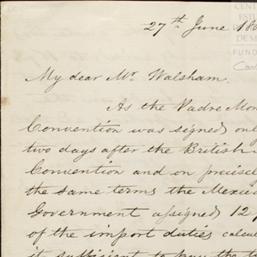 27th June 18
My dear Mr. Walsham.
As the Padre Mor
Convention was signed onl
two days after the British
Convention and on precisel
the same terms the Mexica
Government assigned 12 p
of the import duties calcul
it sufficient to pay the